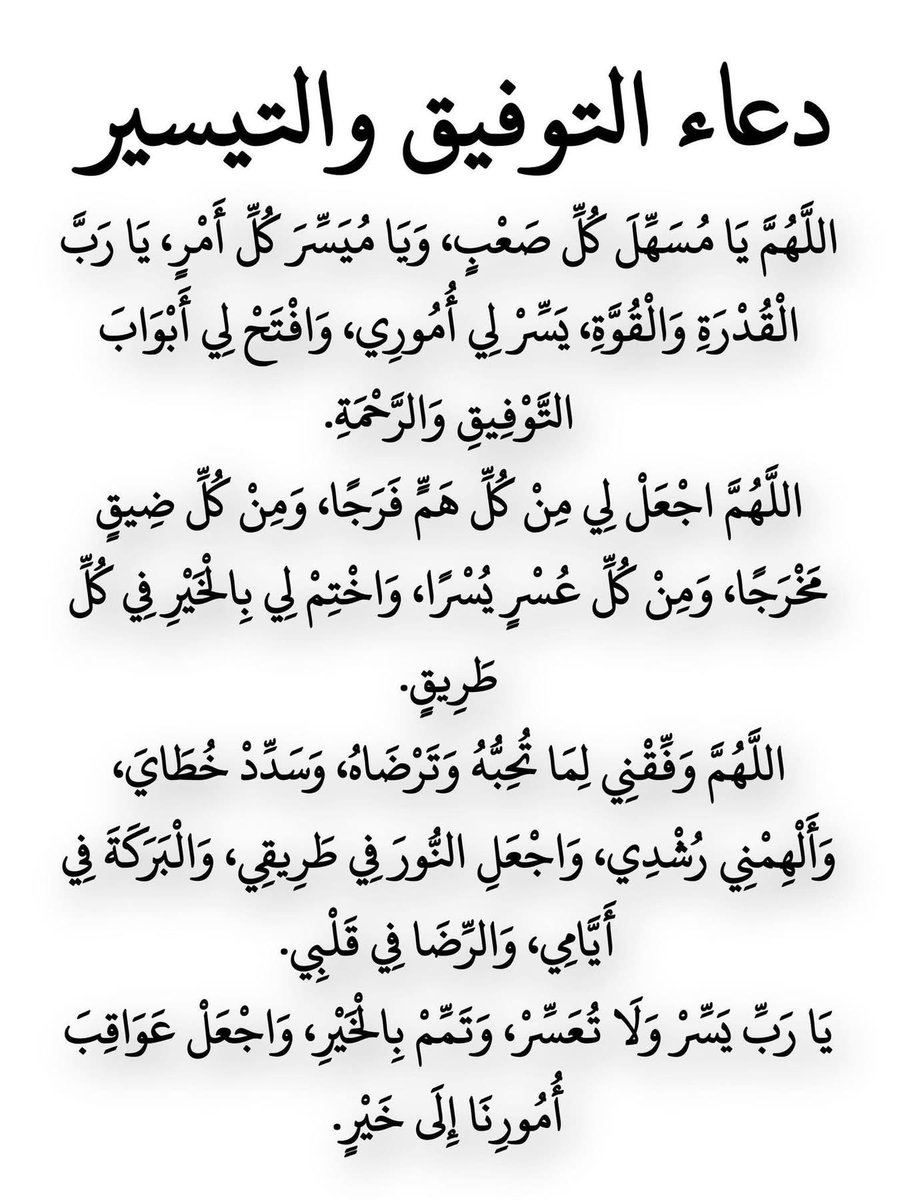 دعاء التوفيق والتيسير
اللَّهُمَّ يَا مُسَهِّلَ كُلِّ صَعْبٍ، وَيَا مُيَسِّرَ كُلِّ أَمْرٍ، يَا رَبَّ
الْقُدْرَةِ وَالْقُوَّةِ، يَسِّرْ لِي أُمُورِي، وَافْتَحْ لِي أَبْوَابَ
التَّوْفِيقِ وَالرَّحْمَةِ.
اللَّهُمَّ اجْعَلْ لِي مِنْ كُلِّ هَمٍّ فَرَجًا، وَمِنْ كُلِّ ضِيقٍ
مَخْرَجًا، وَمِنْ كُلِّ عُسْرٍ يُسْرًا، وَاخْتِمْ لِي بِالْخَيْرِ فِي كُلِّ
طَرِيقٍ.
اللَّهُمَّ وَفِّقْنِي لِمَا تُحِبُّهُ وَتَرْضَاهُ، وَسَدِّدْ خُطَايَ،
وَأَلْهِمْنِي رُشْدِي، وَاجْعَلِ النُّورَ فِي طَرِيقِي، وَالْبَرَكَةَ فِي
أَيَّامِي، وَالرِّضَا فِي قَلْبِي.
يَا رَبِّ يَسِّرْ وَلَا تُعَسِّرْ، وَتَمِّمْ بِالْخَيْرِ، وَاجْعَلْ عَوَاقِبَ
أُمُورِنَا إِلَى خَيْرٍ.